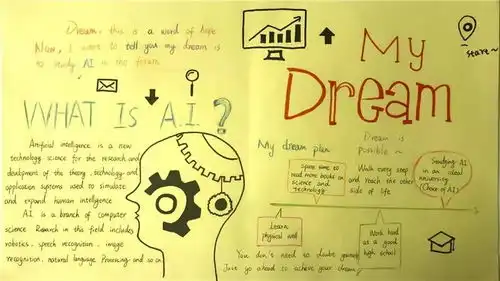 Dream, this is a word of hope
Now, I want to tell you my dream is
to study AI in the future
WHAT Is A.I ?
Artificial intelligence is a new
technology science for the research and
development of the theory, technology and
application systems used to simulate
and expand human intelligence
A.I. is a branch of computer
science Research in this field includes
robotics, speech recognition, image
recognition, natural language Processing and so on
My
Dream
start~
My dream plan
Dream is
possible ~
Spare time to
read more books on
science and
technology
Walk every step
and reach the other
side of life
Studying AI
in an ideal
university
(Choice of AI)
Learn
physical well
Work hard
at a good
high school
You don't need to doubt yourself
Just go ahead to achieve your dream